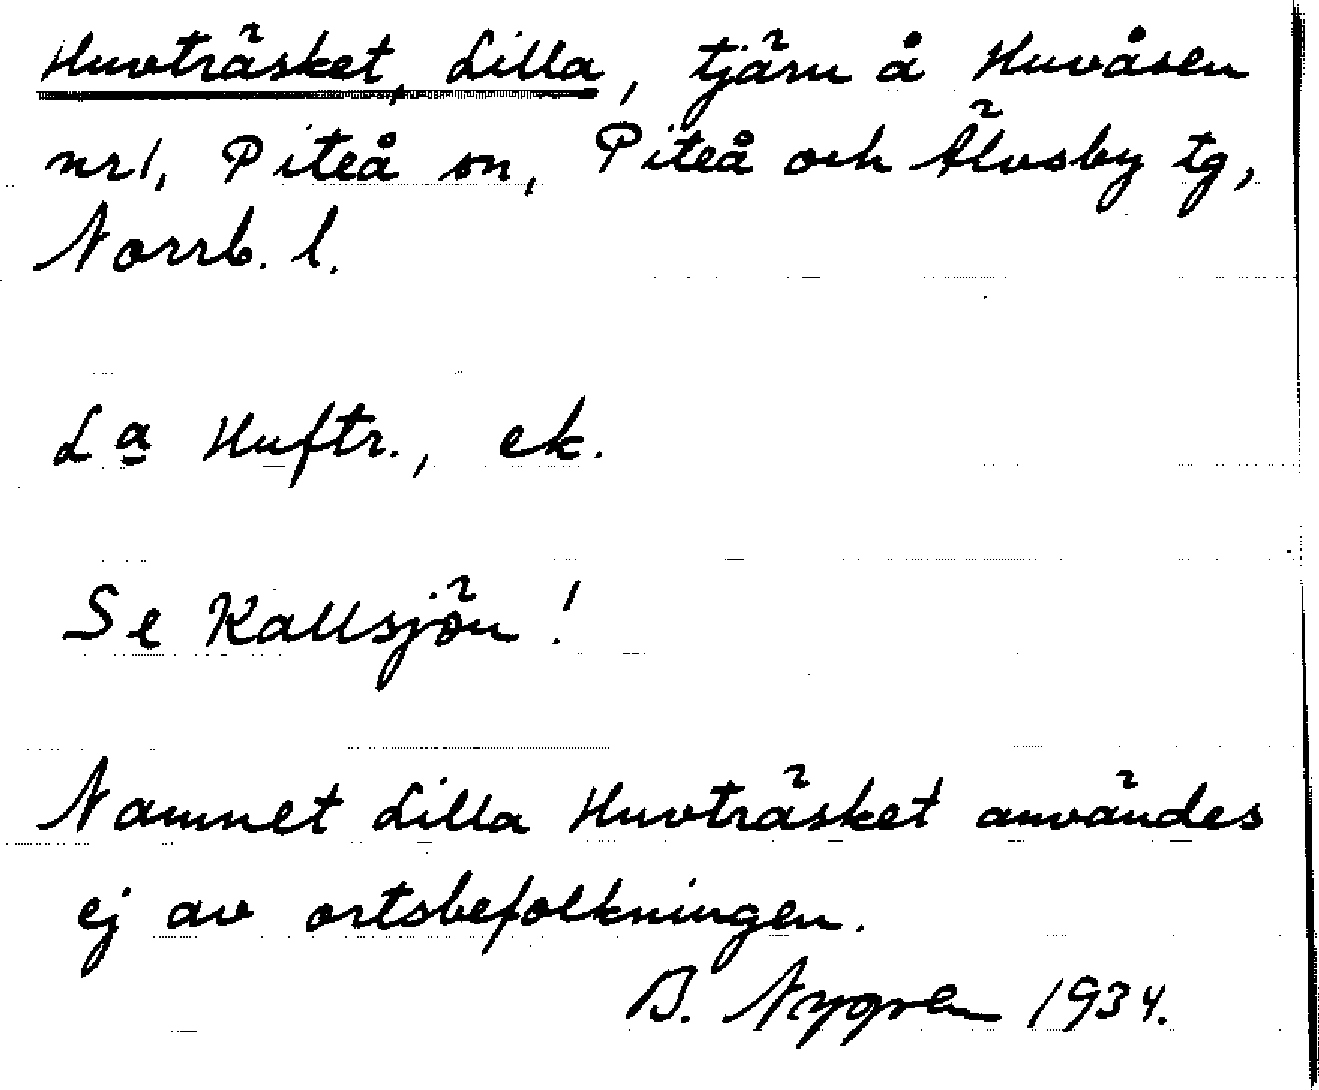 Huvträsket, Lilla, tjärn å Huvåsen
nr 1, Piteå sn, Piteå och Älvsby tg,
Norrb. l.
La Huftr., ek.
Se Kallsjön!
Namnet Lilla Huvträsket användes
ej av ortsbefolkningen.
B. Nygren 1934.